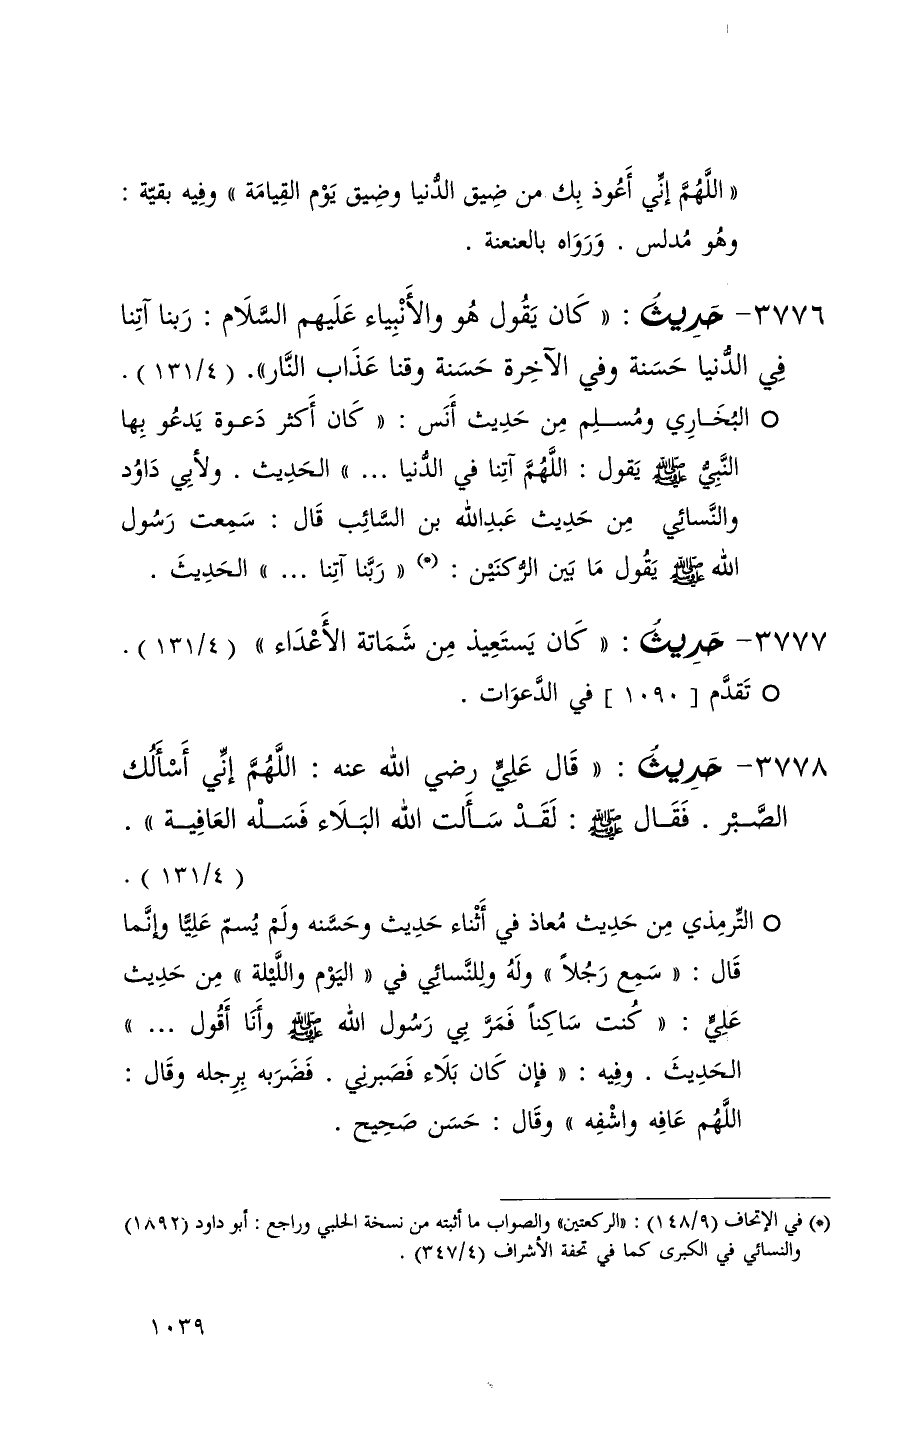 « اللَّهُمَّ إنِّي أَعُوذ بِك من ضِيق الدُّنيا وضِيق يَوْم القِيامَة » وفِيه بقيّة :
وهُو مُدلس . وَرَوَاه بالعنعنة .
٣٧٧٦- حَدِيثُ : « كَان يَقُول هُو والأَنْبِياء عَلَيهم السَّلَام : رَبنا آتِنا
فِي الدُّنيا حَسَنة وفي الآخِرة حَسَنة وقنا عَذَاب النَّار». ( ١٣١/٤ ) .
○ البُخَـارِي ومُسـلِم مِن حَدِيث أَنَس : « كَان أَكثر دَعـوة يَدعُو بِها
النَّبِيُّ ﷺ يَقول : اللَّهُمَّ آتِنا في الدُّنيا ... » الحَدِيث . ولأبِي دَاوُد
والنَّسائِي مِن حَدِيث عَبدِالله بن السَّائِب قَال : سَمِعت رَسُول
الله ﷺ يَقُول مَا بَين الرُّكنَيْن : (*) « رَبَّنا آتِنا ... » الحَدِيثَ .
٣٧٧٧- حَدِيثُ : « كَان يَستَعِيذ مِن شَمَاتة الأَعْدَاء » ( ١٣١/٤ ) .
○ تَقدَّم [ ١٠٩٠ ] في الدَّعوَات .
٣٧٧٨- حَدِيثُ : « قَال عَلِيٍّ رضي الله عنه : اللَّهُمَّ إنِّي أَسْأَلُك
الصَّـبْر . فَقَـال ﷺ : لَقَـدْ سَـأَلت الله البَـلَاء فَسَـلْه العَافِيـة » .
( ١٣١/٤ ) .
○ التِّرمِذي مِن حَدِيث مُعاذ في أَثْناء حَدِيث وحَسَّنه ولَمْ يُسمّ عَلِيًّا وإنَّما
قَال : « سَمِع رَجُلاً » ولَهُ ولِلنَّسائِي في « اليَوْم واللَّيلة » مِن حَدِيث
عَلِيٍّ : « كُنت سَاكِناً فَمَرَّ بِي رَسُول الله ﷺ وأَنَا أَقُول ... »
الحَدِيثَ . وفِيه : « فإن كَان بَلَاء فَصَبرنِي . فَضَرَبه بِرِجله وقَال :
اللَّهُم عَافِه واشْفِه » وقَال : حَسَن صَحِيح .
(*) في الإتحاف (١٤٨/٩) : «الركعتين» والصواب ما أثبته من نسخة الحلبي وراجع : أبو داود (١٨٩٢)
والنسائي في الكبرى كما في تحفة الأشراف (٣٤٧/٤) .
١٠٣٩